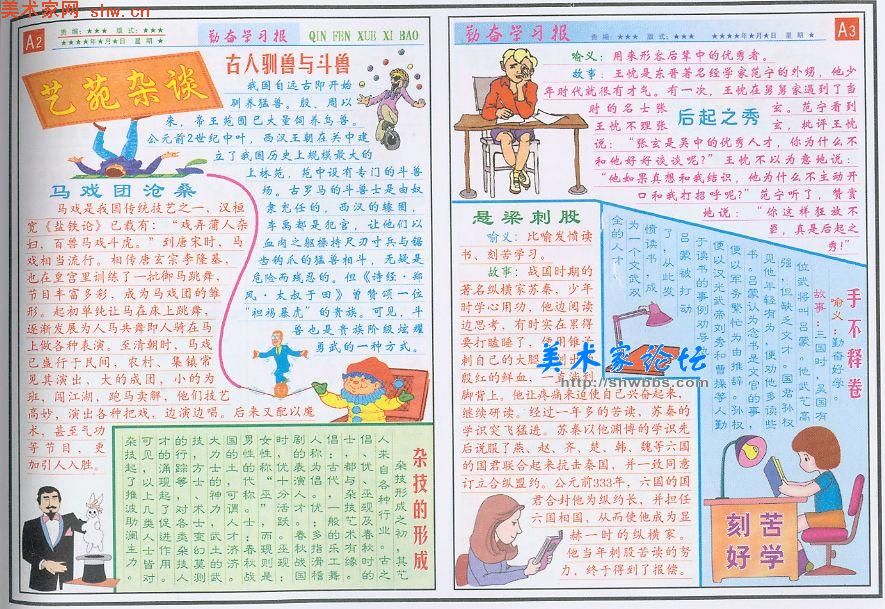 美术家网 shw.cn
A2
责 编：★★★ 版 式：★★★
★★★★年★月★日 星期 ★
勤奋学习报
QIN FEN XUE XI BAO
艺苑杂谈
古人驯兽与斗兽
我国自远古即开始
驯养猛兽。殷、周以
来，帝王苑囿已大量饲养鸟兽。
公元前2世纪中叶，西汉王朝在关中建
立了我国历史上规模最大的
上林苑，苑中设有专门的斗兽
场。古罗马的斗兽士是由奴
隶充任的，西汉的缘囿，
羊禹都是犯官，让他们以
血肉之躯操持尺刃寸兵与锯
齿钩爪的猛兽相斗，无疑是
危险而残忍的。但《诗经·郑
风·太叔于田》曾赞颂一位
“袒裼暴虎”的贵族。可见，斗
兽也是贵族阶级炫耀
勇武的一种方式。
马戏团沧桑
马戏是我国传统技艺之一，汉桓
宽《盐铁论》已载有：“戏弄蒲人杂
妇，百兽马戏斗虎。”到唐宋时，马
戏相当流行。相传唐玄宗李隆基，
也在宫里训练了一批御马跳舞，
节目丰富多彩，成为马戏团的雏
形。起初单纯让马在床上跳舞，
逐渐发展为人马共舞即人骑在马
上做各种表演。至清朝时，马戏
已盛行于民间，农村、集镇常
见其演出、大的成团，小的为
班，闯江湖，跑马卖解，他们技艺
高妙，演出各种把戏，边演边唱。后来又配以魔
术、甚至气功
等节目，更
加引人入胜。
杂技的形成
杂技形成之初，其艺
人来自各种行业。古之
倡、优、巫觋及春秋时的
士，都与杂技艺术有缘。
倡，古代一般的乐工舞
人称为倡。优，多指滑稽
剧的表演人才。春秋战国
时，优十分活跃。巫觋，
女性称“巫”，而觋则是
男性的代称。士，春秋战
国的士，可谓人才济济，
大力士的神力，武士的武
技，方士的奇术，士变幻莫测
的行踪等，对各类杂技人
才的涌现起了促进作用。
可见，以上几类人士皆对
杂技起了推波助澜主力。
勤奋学习报
责 编：★★★ 版 式：★★★
★★★★年★月★日 星期 ★
A3
喻义：用来形容后辈中的优秀者。
故事：王忱是东晋著名经学家范宁的外甥，他少
年时代就很有才气。有一次，王忱在舅舅家遇到了当
时的名士张玄。范宁看到
王忱不理张玄，批评王忱
后起之秀
说：“张玄是吴中的优秀人才，你为什么不
和他好好谈谈呢？”王忱不以为意地说：
“他如果真想和我结识，他为什么不主动开
口和我打招呼呢？”范宁听了，赞赏
地说：“你这样狂放不
羁，真是后起之
秀！”
悬梁刺股
喻义：比喻发愤读
书、刻苦学习。
故事：战国时期的
著名纵横家苏秦，少年
时学心用功，他边阅读
边思考，有时实在累得
要打瞌睡了，便用锥子
刺自己的大腿，刺出了
殷红的鲜血，一直流到
脚背上。他让疼痛来迫使自己兴奋起来，
继续研读。经过一年多的苦读，苏秦的
学识突飞猛进。苏秦以他渊博的学识先
后说服了燕、赵、齐、楚、韩、魏等六国
的国君联合起来抗击秦国，并一致同意
订立合纵盟约。公元前333年，六国的国
君合封他为纵约长，并担任
六国相国，从而使他成为显
赫一时的纵横家。
他当年刺股苦读的努
力，终于得到了报偿。
手不释卷
喻义：勤奋好学。
故事：三国时，吴国有
位武将叫吕蒙。他武艺高
强，但缺乏文才。国君孙权
见他年轻有为，便劝他多读些
书。吕蒙认为读书是文官的事，
便以军务繁忙为由推辞。孙权
便以汉光武帝刘秀和曹操等人勤
于读书的事例劝导
吕蒙被打动
了，从此发
愤读书，成
为一个文武双
全的人才
美术家论坛
http://shwbbs.com
刻苦
好学